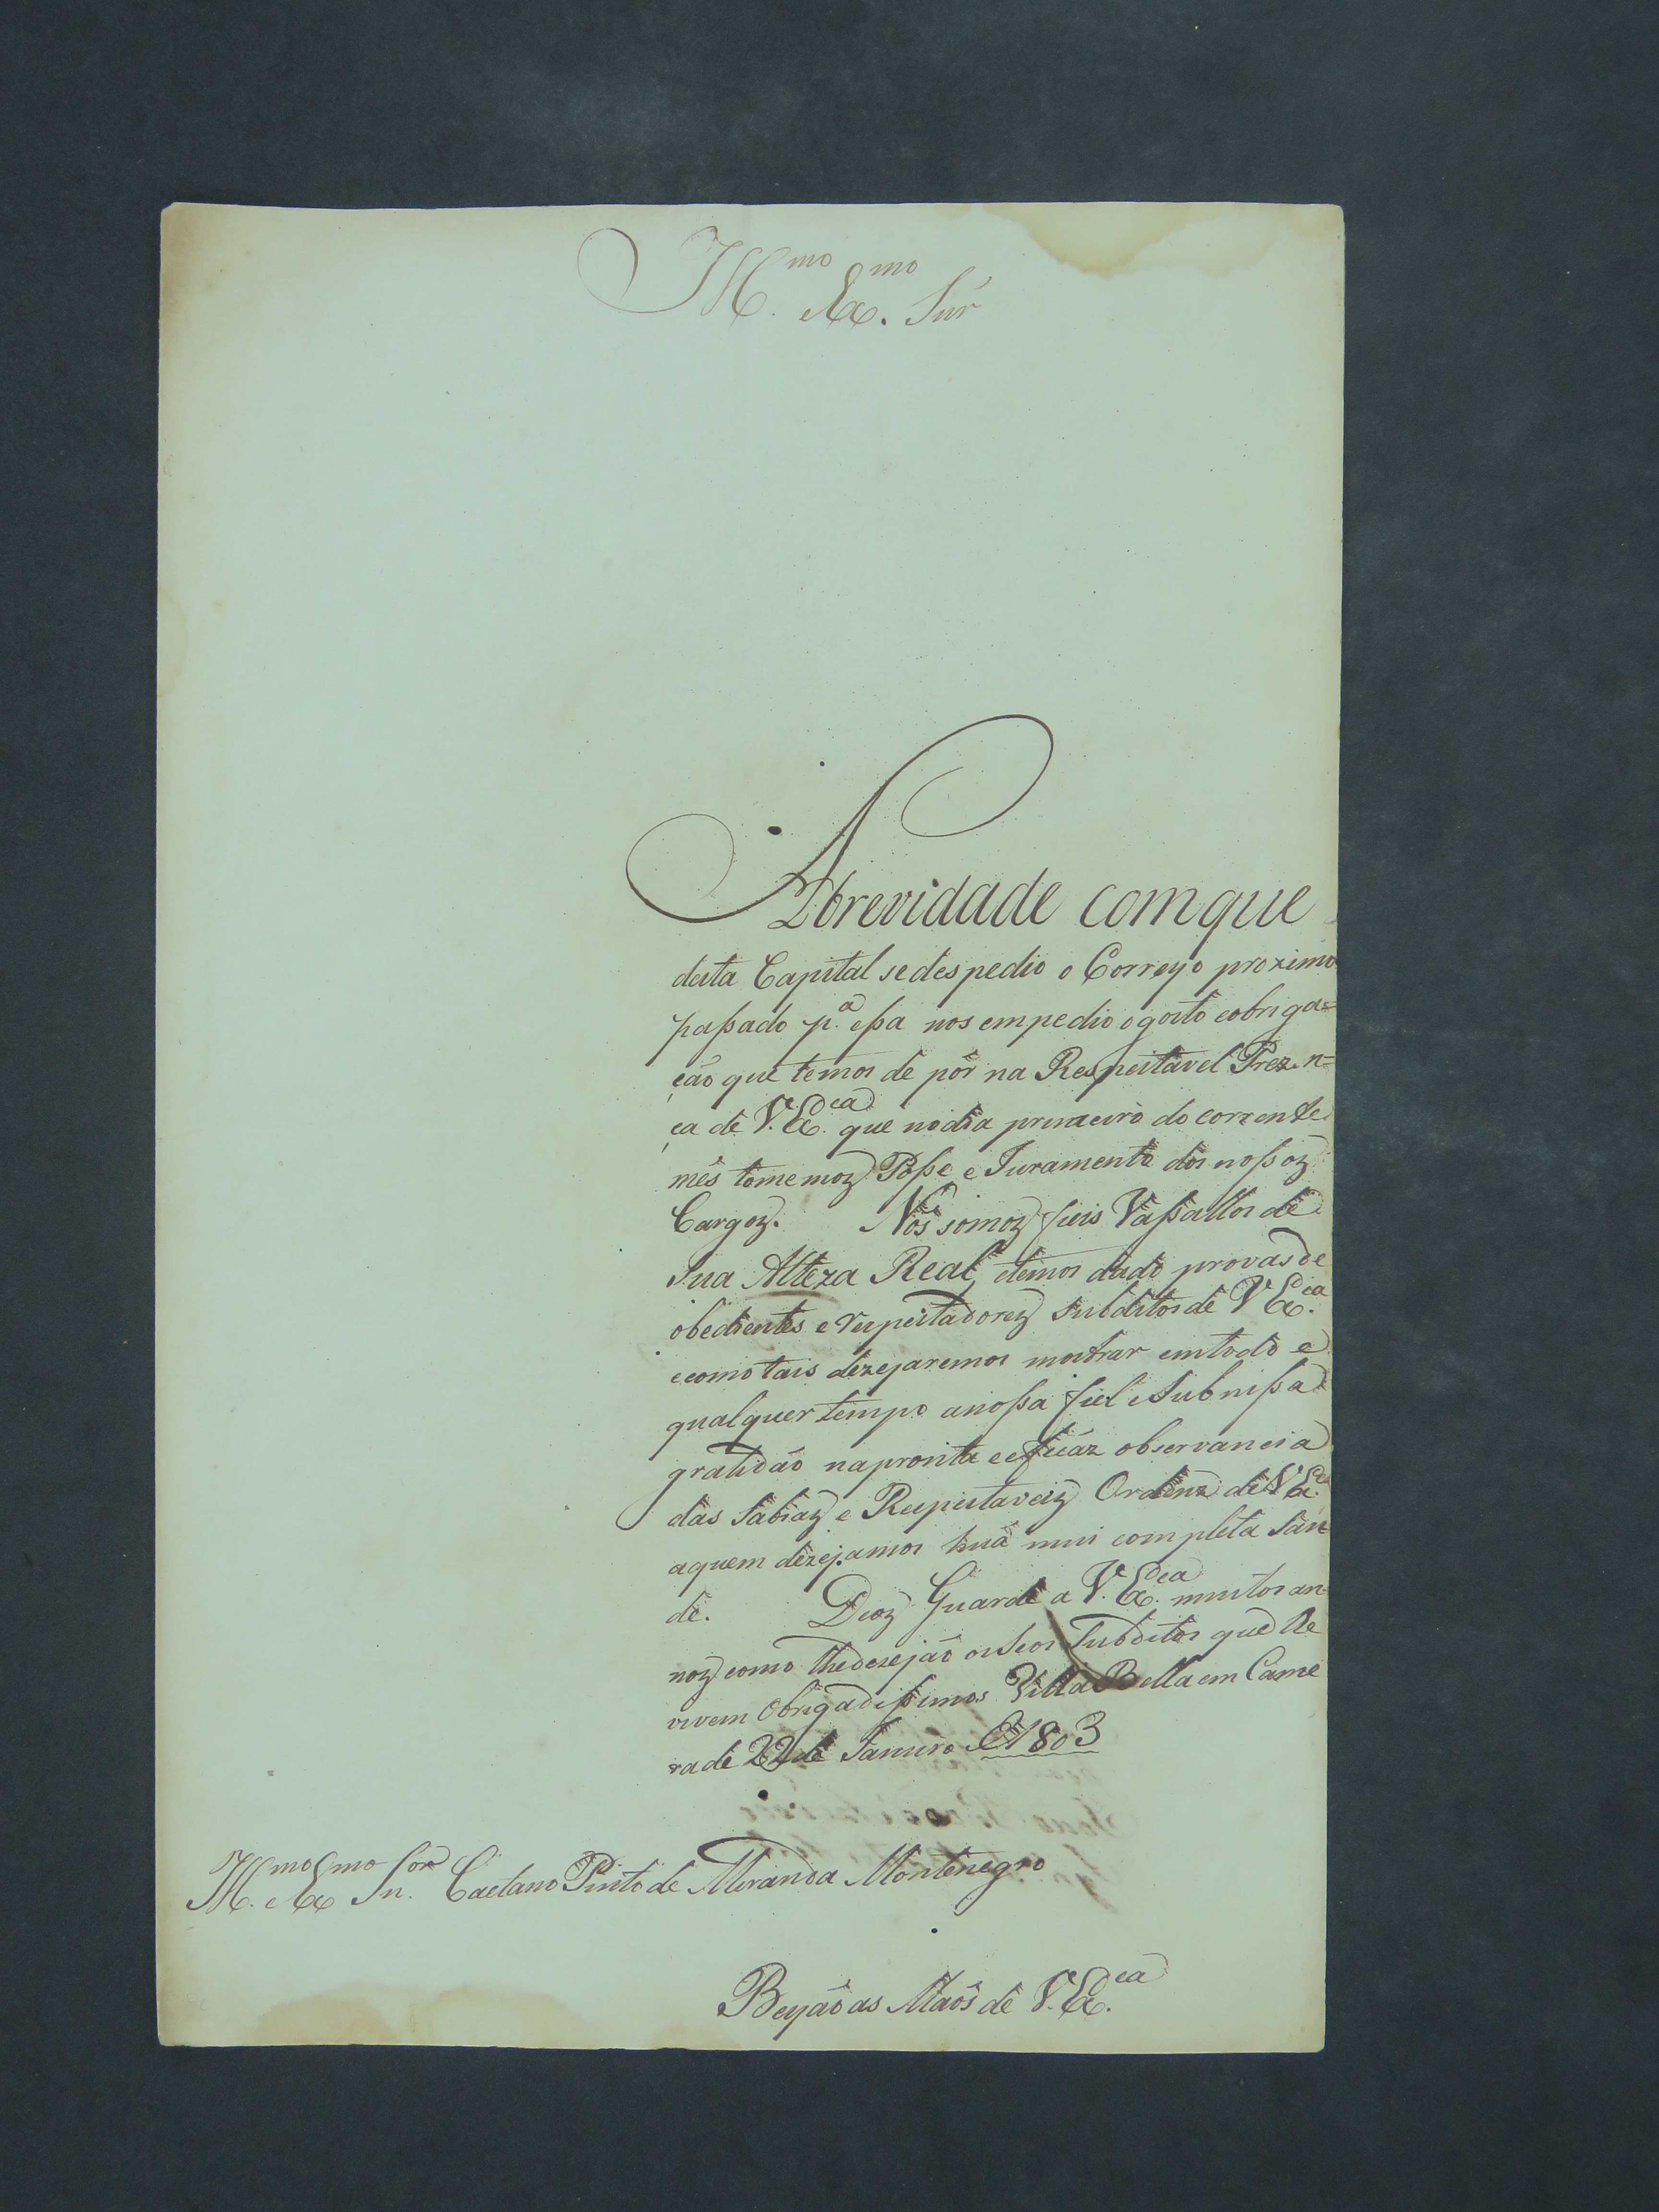 Ill.mo Ex.mo Snr
A brevidade com que
desta Capital sedespedio o Correyo proximo
passado p.a essa nos empedio o gosto eobriga=
ção que temos de pôr na Respeitavel Prezen=
ça de V. Ex.cia que nodia primeiro do corrente
mês tomemoz Posse e Juramento dos nossoz
Cargoz. Nós somoz fieis Vassallos de
Sua Alteza Real, etemos dado provas de
obedientes e respeitadorez subditos de V Ex.cia
ecomo tais dezejaremos mostrar emtodo e
qualquer tempo anossa fiel eSubmissa
gratidão napronta eeficáz observancia
das Sabiaz e Respeitaveiz Ordenz de V Ex.cia
aquem dezejamos huã mui completa Sau
de. Deoz Guarde a V. Ex.cia muitos an
noz como lhedezejão osSeos Subditos que lhe
vivem Obrigadissimos Villa Bella em Came
ra de 22 de Janeiro de 1803
Ill.mo e Ex.mo Sn.or Caetano Pinto de Miranda Montenegro
Beyão as Maõs de V. Ex.cia